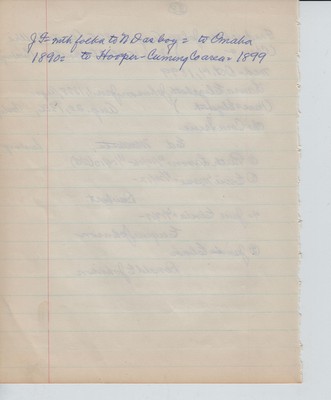 J.F. with folks to N Dak boy = to Omaha
1890s to Hooper-Cuming Co area = 1899